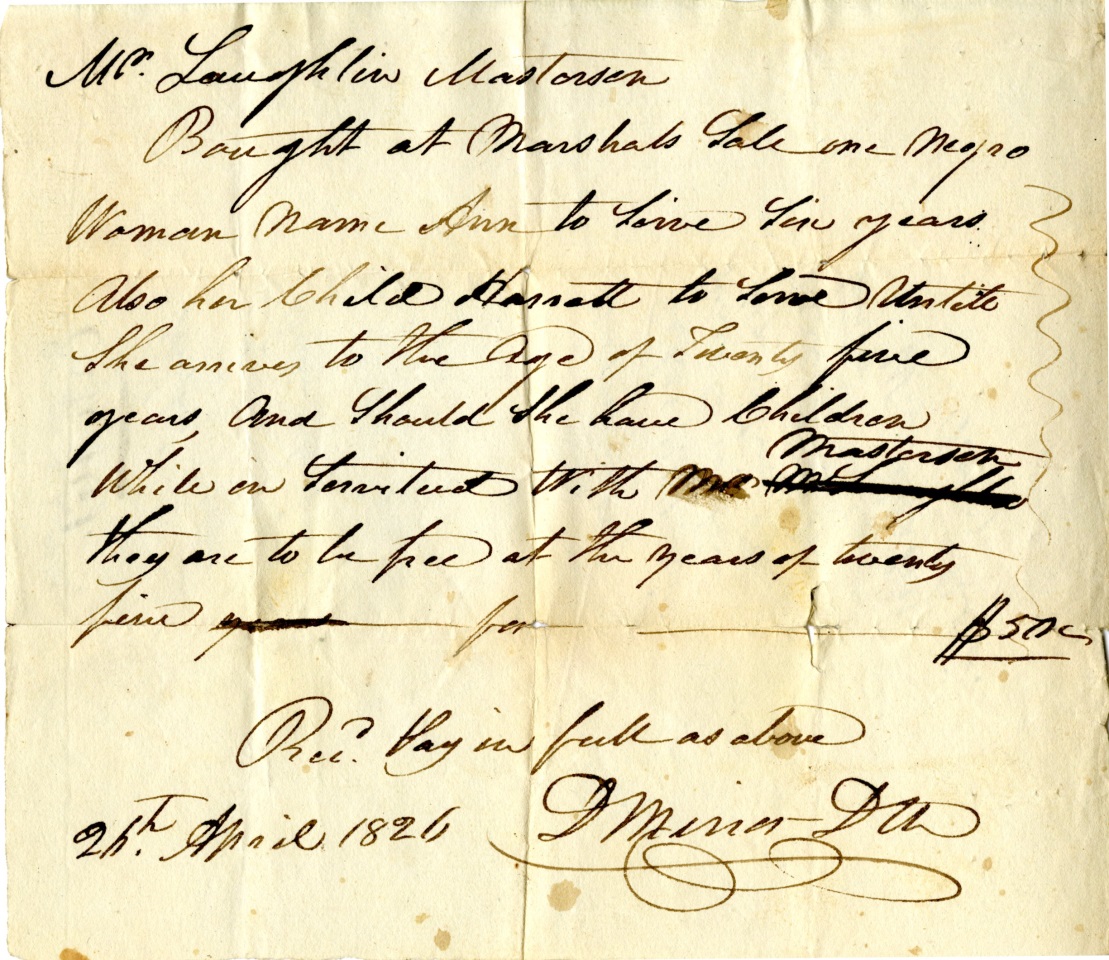 Mr. Laughlin Masterson
Bought at Marshals Sale one Negro
Woman Name Ann to Serve Six years
Also her Child Harrett to Serve Untill
She arrives to the Age of Twenty five
years, and Should She have Children
Masterson
While on Servitued With Mr
they are to be free at the years of twenty
five years for $50
Recd. Pay in full as above
26th. April 1826 D Minor